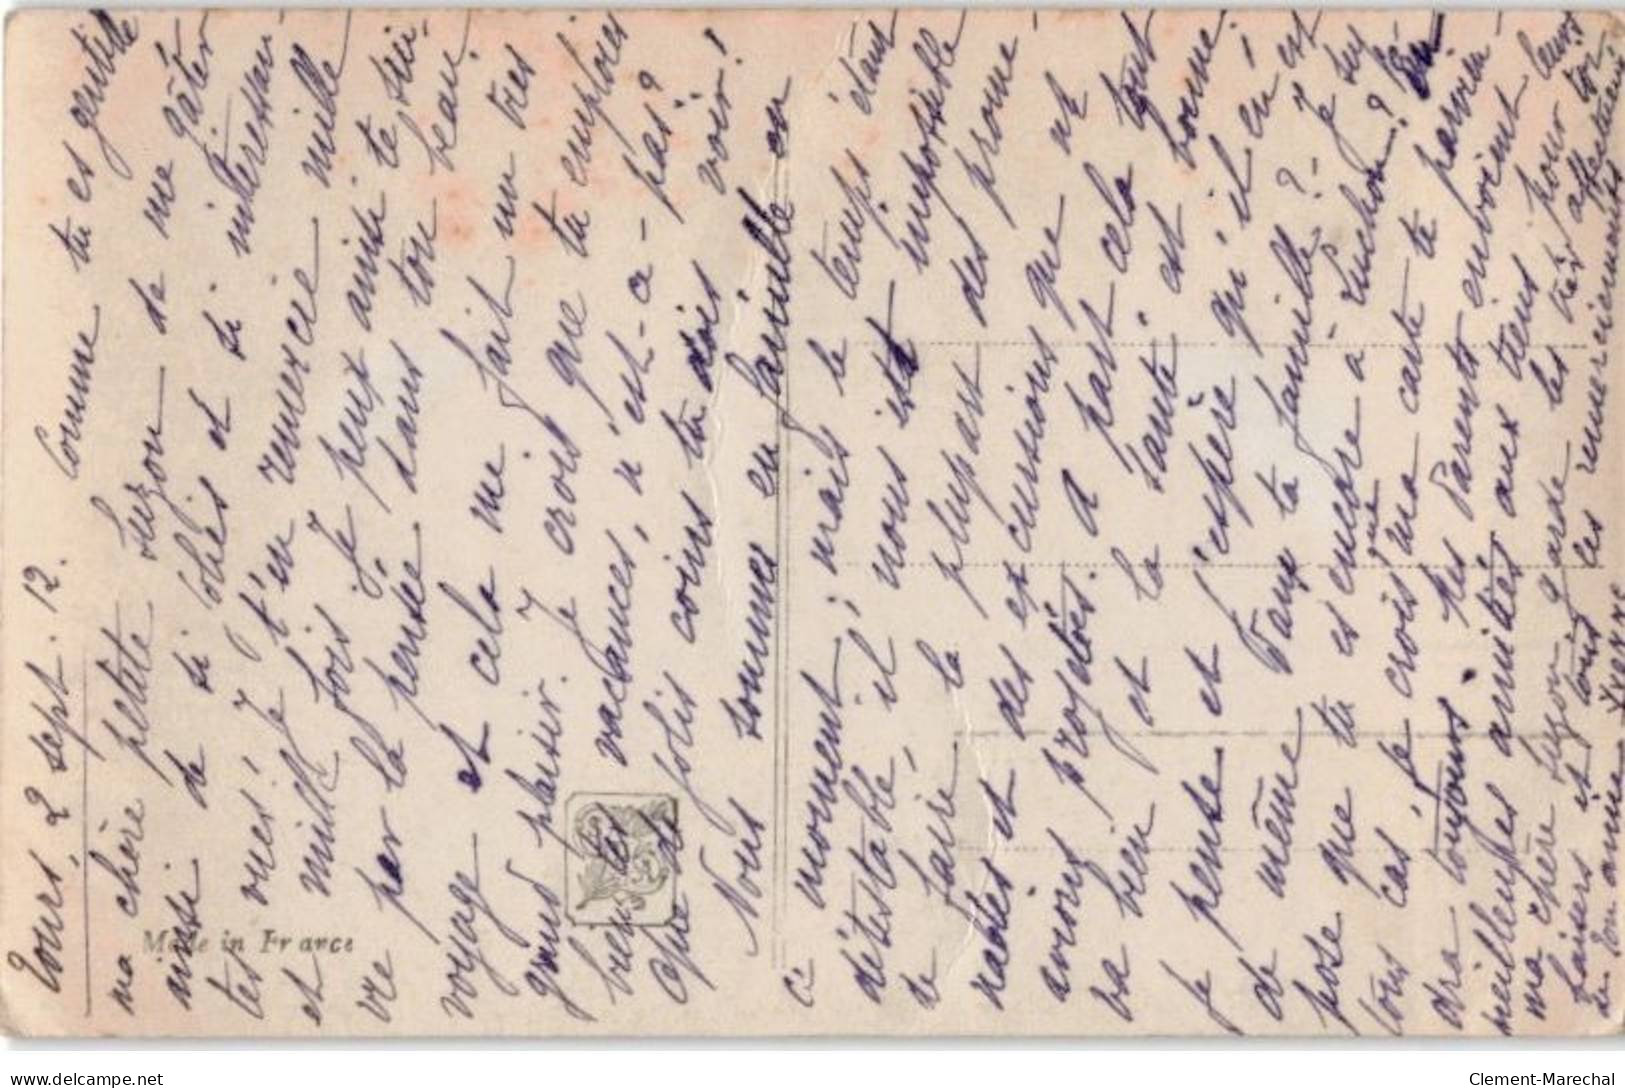 Tours, 2 sept. 12. Comme tu es gentille
ma chère petite Suzon de me gâter
ainsi de si jolies et si intéressan-
tes vues, je t'en remercie mille
et mille fois. Je peux ainsi te sui-
vre par la pensée dans ton beau
voyage et cela me fait un très
grand plaisir. Je crois que tu emploies
bien tes vacances, n'est-ce-pas?
Que de jolis coins tu dois voir!
Nous sommes en famille en
ce moment; mais le temps étant
détestable, il nous est impossible
de faire la plupart des prome-
nades et des excursions que ns
avions projetées. A part cela tout
va bien et la santé est bonne.
Je pense et j'espère qu'il en est
de même dans ta famille? - Je sup
pose que tu es encore à Luchon? En
tous cas, je crois que ma carte te parvien-
dra toujours. Mes Parents envoient leurs
meilleures amitiés aux tiens pour toi
ma chère Suzon garde les très affectueux
baisers et tous les remerciements
de ton amie Yvonne
Made in France
delcampe.net
Clement-Marechal